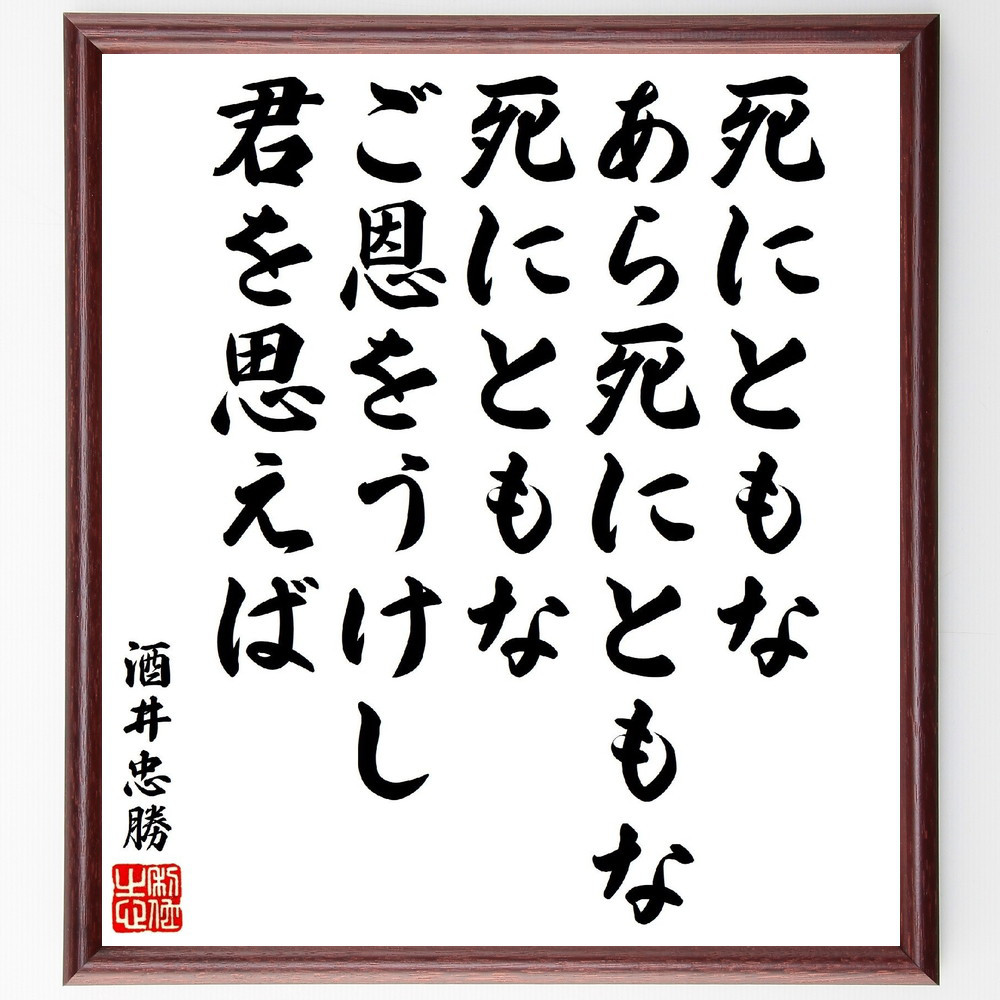 死にともな
あら死にともな
死にともな
ご恩をうけし
君を思えば
酒井忠勝